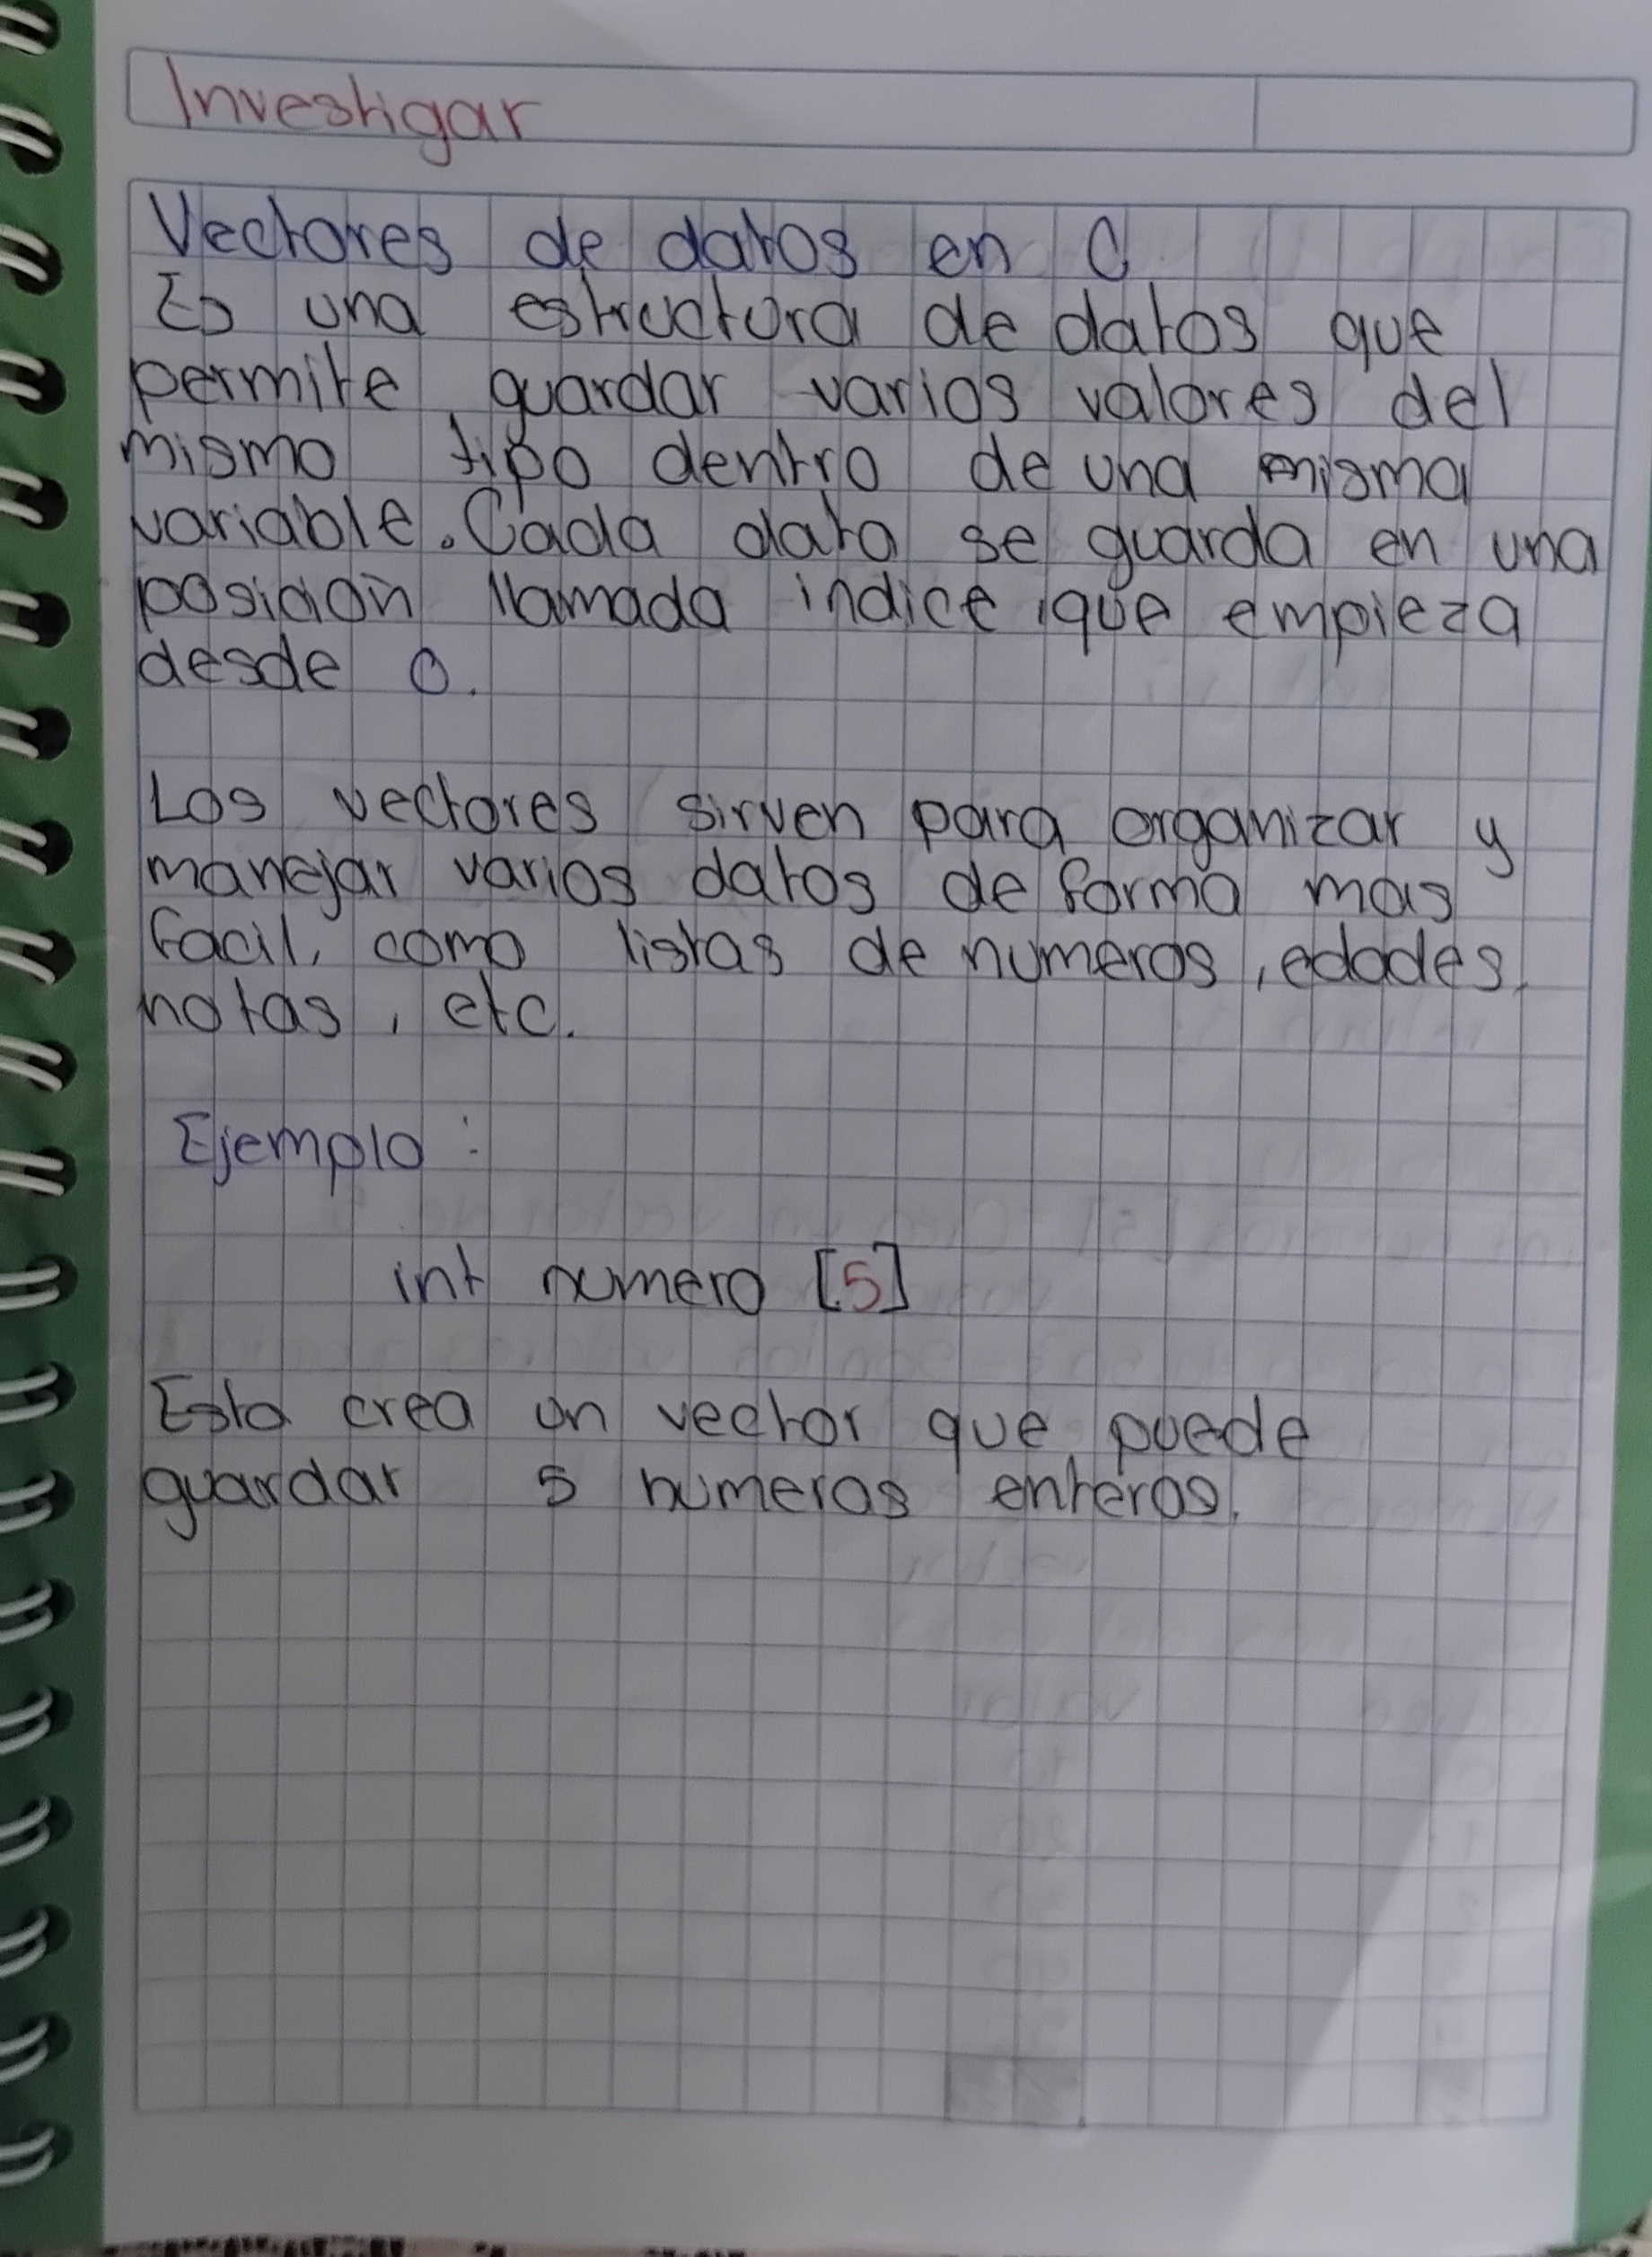 Investigar
Vectores de datos en C
Es una estructura de datos que
permite guardar varios valores del
mismo tipo dentro de una misma
variable. Cada dato se guarda en una
posición llamada indice que empieza
desde 0.
Los vectores sirven para organizar y
manejar varios datos de forma mas
facil, como listas de numeros, edades,
notas, etc.
Ejemplo:
int numero [5]
Esto crea un vector que puede
guardar 5 numeros enteros.